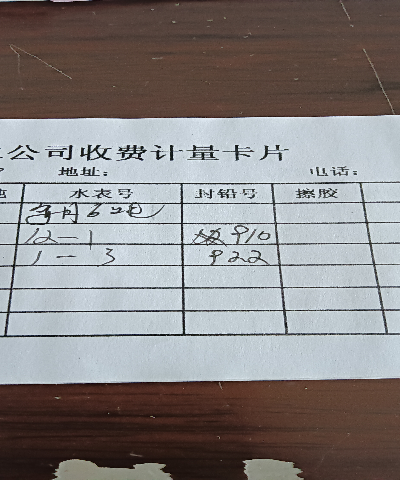 公司收费计量卡片
地址: 电话:
水表号 封铅号 擦胶
12-1 910
1-3 922